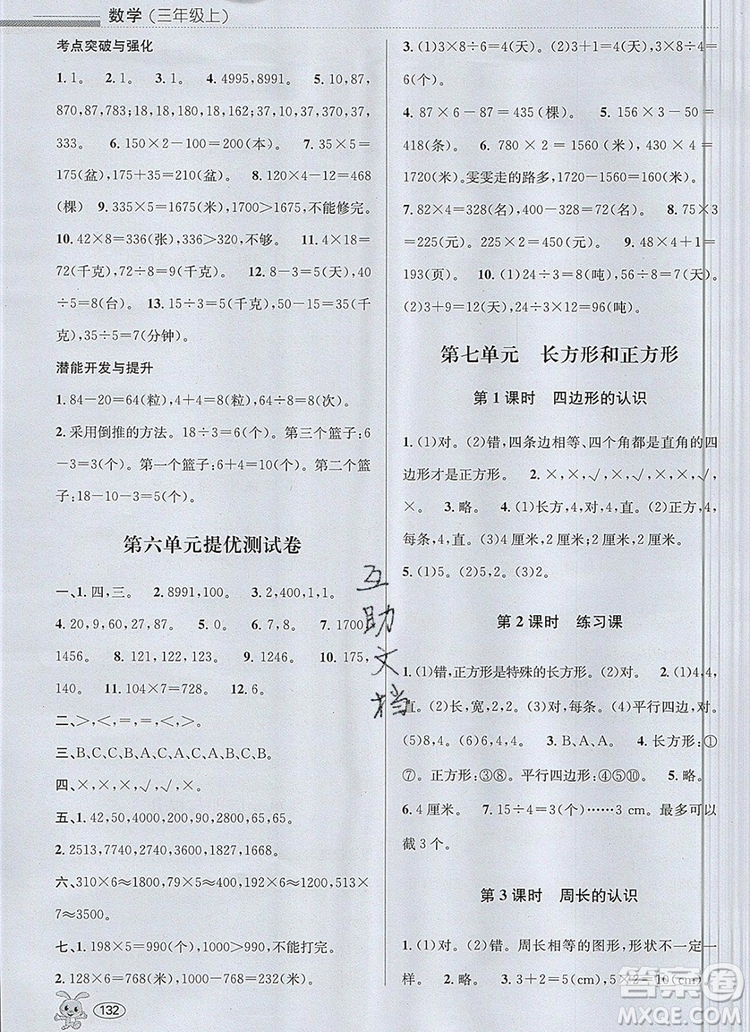 数学(三年级上)
考点突破与强化
1. 1。 2. 1。 3. 1。 4. 4995,8991。 5. 10,87,
870,87,783;18,18,180,18,162;37,10,37,370,37,
333。 6. 150×2-100=200(本)。 7. 35×5=
175(盆),175+35=210(盆)。 8. 120×4-12=468
(棵) 9. 335×5=1675(米),1700>1675,不能修完。
10. 42×8=336(张),336>320,不够。 11. 4×18=
72(千克),72-30=42(千克)。 12. 6÷2=3(天),
40÷5=8(台)。 13. 15÷3=5(千克),50-15=35(千
克),35÷5=7(分钟)。
潜能开发与提升
1. 84-20=64(粒),64÷8=8(粒),64÷8=8(次)。
2. 采用倒推的方法。18÷3=6(个)。第三个篮子:6+
3=9(个)。第一个篮子:6+4=10(个)。第二个篮
子:18-10-3=5(个)。
第六单元提优测试卷
一、1. 四,三。 2. 8991,100。 3. 2,400,1,1。
4. 20,9,60,27,87。 5. 0。 6. 7,8。 7. 1700,
1456。 8. 121。 9. 1246。 10. 33,155。 11. 7,
140。 11. 104×7=728。 12. 6。
二、>,<,=,>,<,=。
三、B,C,C,B,A,C,A,C,C,B。
四、×,×,√,√,×。
五、1. 42,50,4000,200,9,4000,0,2800。
2. 2513,7740,2740,3600,1287,1668。
六、310×6≈1800,992×2≈2000,102×12≈1200,513×
7≈3500。
七、1. 198×5=990(个),1000>990,不能打完。
2. 128×6=768(个),128+768=896(个)。
132
3. (1)3×8÷6=4(天)。(2)3×8÷4=6(个)。(3)3×8÷
4=6(个)。
4. 87×6-87=435(棵)。 5. 156×3-50=
418(条)。 6. 780×2=1560(米),430×4=
1720(米)。雯雯走的路多,1720>1560。
7. 82×4=328(名),400-328=72(名)。 8. 75×3
=225(元)。 9. 24×8+1=
193(页)。 10. (1)24÷3=8(吨),96÷8=12(天)。
(2)3+9=12(天),24÷3=8(吨),8×12=96(吨)。
第七单元 长方形和正方形
第1课时 四边形的认识
1. (1)对。(2)错,四条边相等、四个角都是直角的四
边形才是正方形。 2. ×,×,√,×,√,×,√,
×。 3. 略。 4. (1)长方,4,对,4,直。(2)正方,4,
4,直。(3)5厘米,2厘米,5厘米。(4)4厘米,4厘米。
5. (1)5。(2)5。(3)2。
第2课时 练习课
1. (1)错,正方形是特殊的长方形。(2)对。 2. (1)4,对,4,
直。(2)长,宽,2,2。(3)对,每条。(4)平行四边形,对。
(5)8,4。(6)4,2。 3. B,A,A。 4. 长方形:①
⑦。正方形:③⑧。平行四边形:④⑤⑩。 5. 略。
6. 4厘米。 7. 15÷4=3(个)……3cm。最多可以
截3个。
第3课时 周长的认识
1. (1)对。(2)错。周长相等的图形,形状不一定一
样。 2. 略。 4. 5×3=15(cm),5×2=10(cm)。
互助文档
答案圈
MXQE.COM